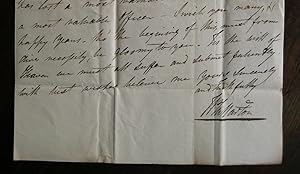 has lost a most
a most valuable Officer — I wish you many
happy years. tho' the beginning of this must from
necessity be gloomy to you. To the will of
Heaven we must all suffer and submit patiently
with best wishes believe me yours sincerely
and faithfully